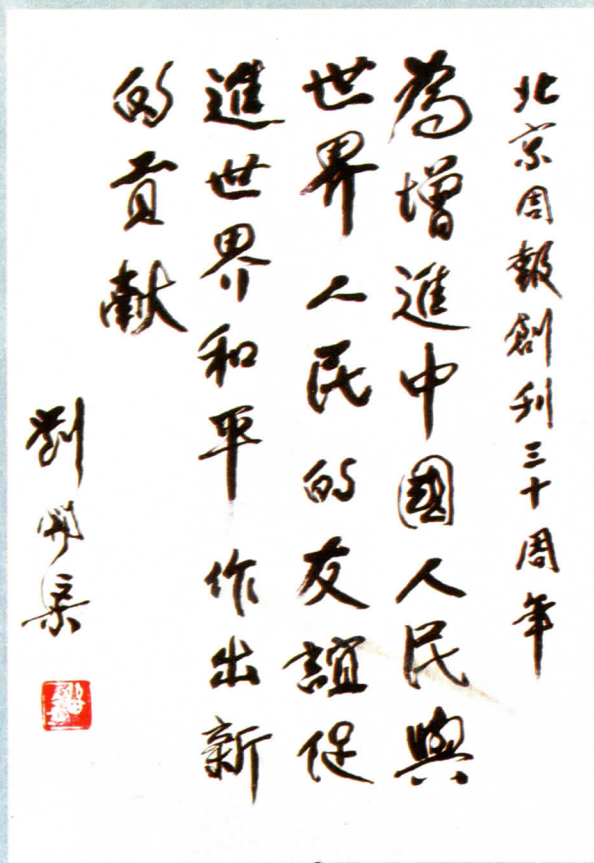 北京周報創刊三十周年
為增進中國人民與
世界人民的友誼促
進世界和平作出新
的貢献
劉開渠